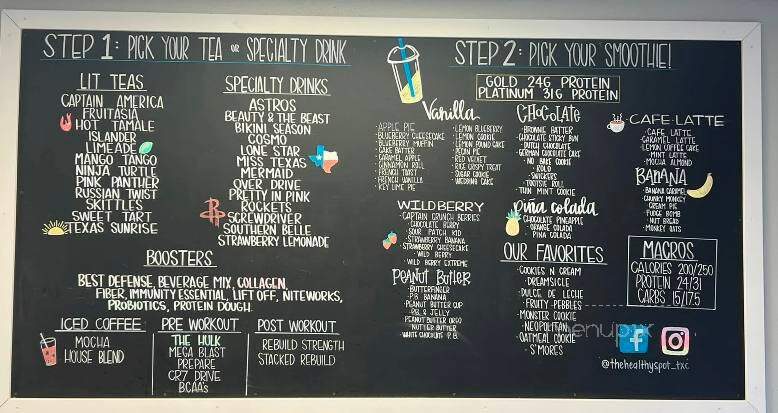 STEP 1: PICK YOUR TEA OR SPECIALTY DRINK
LIT TEAS
CAPTAIN AMERICA
FRUITASIA
HOT TAMALE
ISLANDER
LIMEADE
MANGO TANGO
NINJA TURTLE
PINK PANTHER
RUSSIAN TWIST
SKITTLES
SWEET TART
TEXAS SUNRISE
SPECIALTY DRINKS
ASTROS
BEAUTY & THE BEAST
BIKINI SEASON
COSMO
LONE STAR
MISS TEXAS
MERMAID
OVER DRIVE
PRETTY IN PINK
ROCKETS
SCREWDRIVER
SOUTHERN BELLE
STRAWBERRY LEMONADE
BOOSTERS
BEST DEFENSE, BEVERAGE MIX, COLLAGEN,
FIBER, IMMUNITY ESSENTIAL, LIFT OFF, NITEWORKS,
PROBIOTICS, PROTEIN DOUGH.
ICED COFFEE
MOCHA
HOUSE BLEND
PRE WORKOUT
THE HULK
MEGA BLAST
PREPARE
CR7 DRIVE
BCAA's
POST WORKOUT
REBUILD STRENGTH
STACKED REBUILD
STEP 2: PICK YOUR SMOOTHIE!
GOLD 24G PROTEIN
PLATINUM 31G PROTEIN
Vanilla
·APPLE PIE
·BLUEBERRY CHEESECAKE
·BLUEBERRY MUFFIN
·CAKE BATTER
·CARAMEL APPLE
·CINNAMON ROLL
·FRENCH TOAST
·FRENCH VANILLA
·KEY LIME PIE
·LEMON BLUEBERRY
·LEMON COOKIE
·LEMON POUND CAKE
·PECAN PIE
·RED VELVET
·RICE CRISPY TREAT
·SUGAR COOKIE
·WEDDING CAKE
WILDBERRY
·CAPTAIN CRUNCH BERRIES
·CHOCOLATE BERRY
·SOUR PATCH KID
·STRAWBERRY BANANA
·STRAWBERRY CHEESECAKE
·WILD BERRY
·WILD BERRY EXTREME
PEANUT BUTTER
·BUTTERFINGER
·P.B. BANANA
·PEANUT BUTTER CUP
·P.B. & JELLY
·PEANUT BUTTER OREO
·NUTTIER BUTTER
·WHITE CHOCOLATE P.B.
CHOCOLATE
·BROWNIE BATTER
·CHOCOLATE STICKY BUN
·DUTCH CHOCOLATE
·GERMAN CHOCOLATE CAKE
·NO BAKE COOKIE
·ROLO
·SNICKERS
·TOOTSIE ROLL
·THIN MINT COOKIE
Piña colada
·CHOCOLATE PINEAPPLE
·ORANGE COLADA
·PINA COLADA
OUR FAVORITES
·COOKIES N CREAM
·DREAMSICLE
·DULCE DE LECHE
·FRUITY PEBBLES
·MONSTER COOKIE
·NEOPOLITAN
·OATMEAL COOKIE
·S'MORES
·CAFE LATTE
·CAFE LATTE
·CARAMEL LATTE
·LEMON COFFEE CAKE
·MINT LATTE
·MOCHA LATTE
BANANA
·BANANA CARAMEL
·CHUNKY MONKEY
·CREAM PIE
·FUDGE BOMB
·NUT BREAD
·MONKEY OATS
MACROS
CALORIES 200/250
PROTEIN 24/31
CARBS 15/17.5
menupix
@thehealthyspot_txc